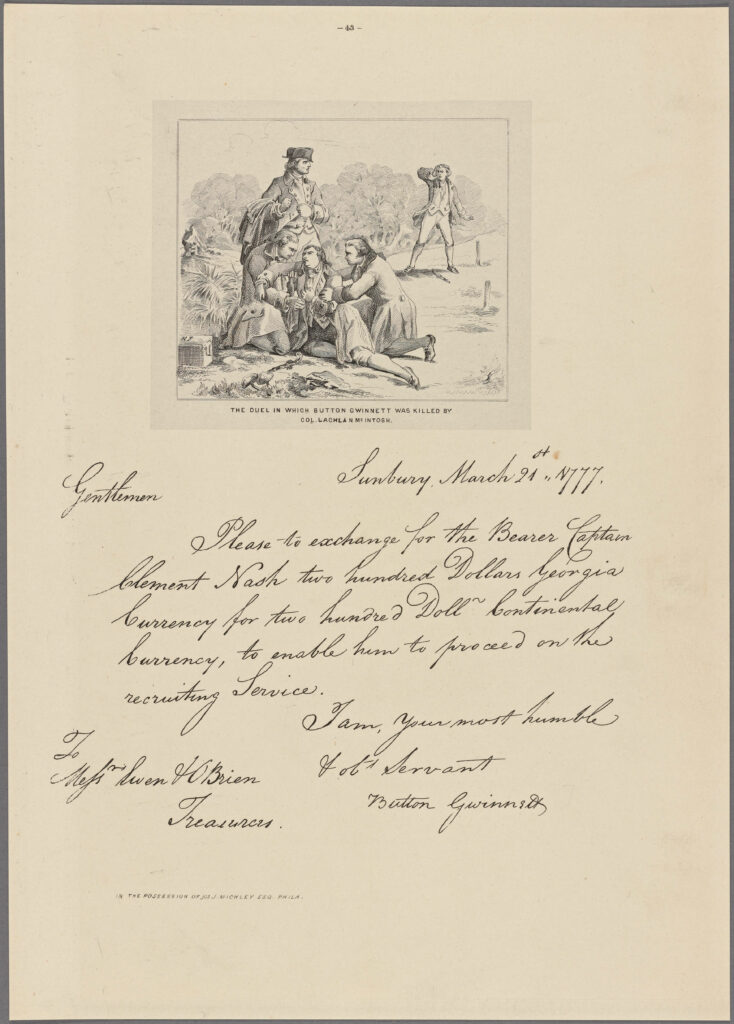 - 43 -
THE DUEL IN WHICH BUTTON GWINNETT WAS KILLED BY
COL. LACHLAN McINTOSH.
Sunbury, March 21st, 1777.
Gentlemen
Please to exchange for the Bearer Captain
Clement Nash two hundred Dollars Georgia
Currency for two hundred Dollrs Continental
Currency, to enable him to proceed on the
recruiting Service.
I am, Your most humble
& obt Servant
Button Gwinnett
To
Messrs & O'Brien
Treasurers.
IN THE POSSESSION OF JOS J. MICKLEY ESQ. PHILA.